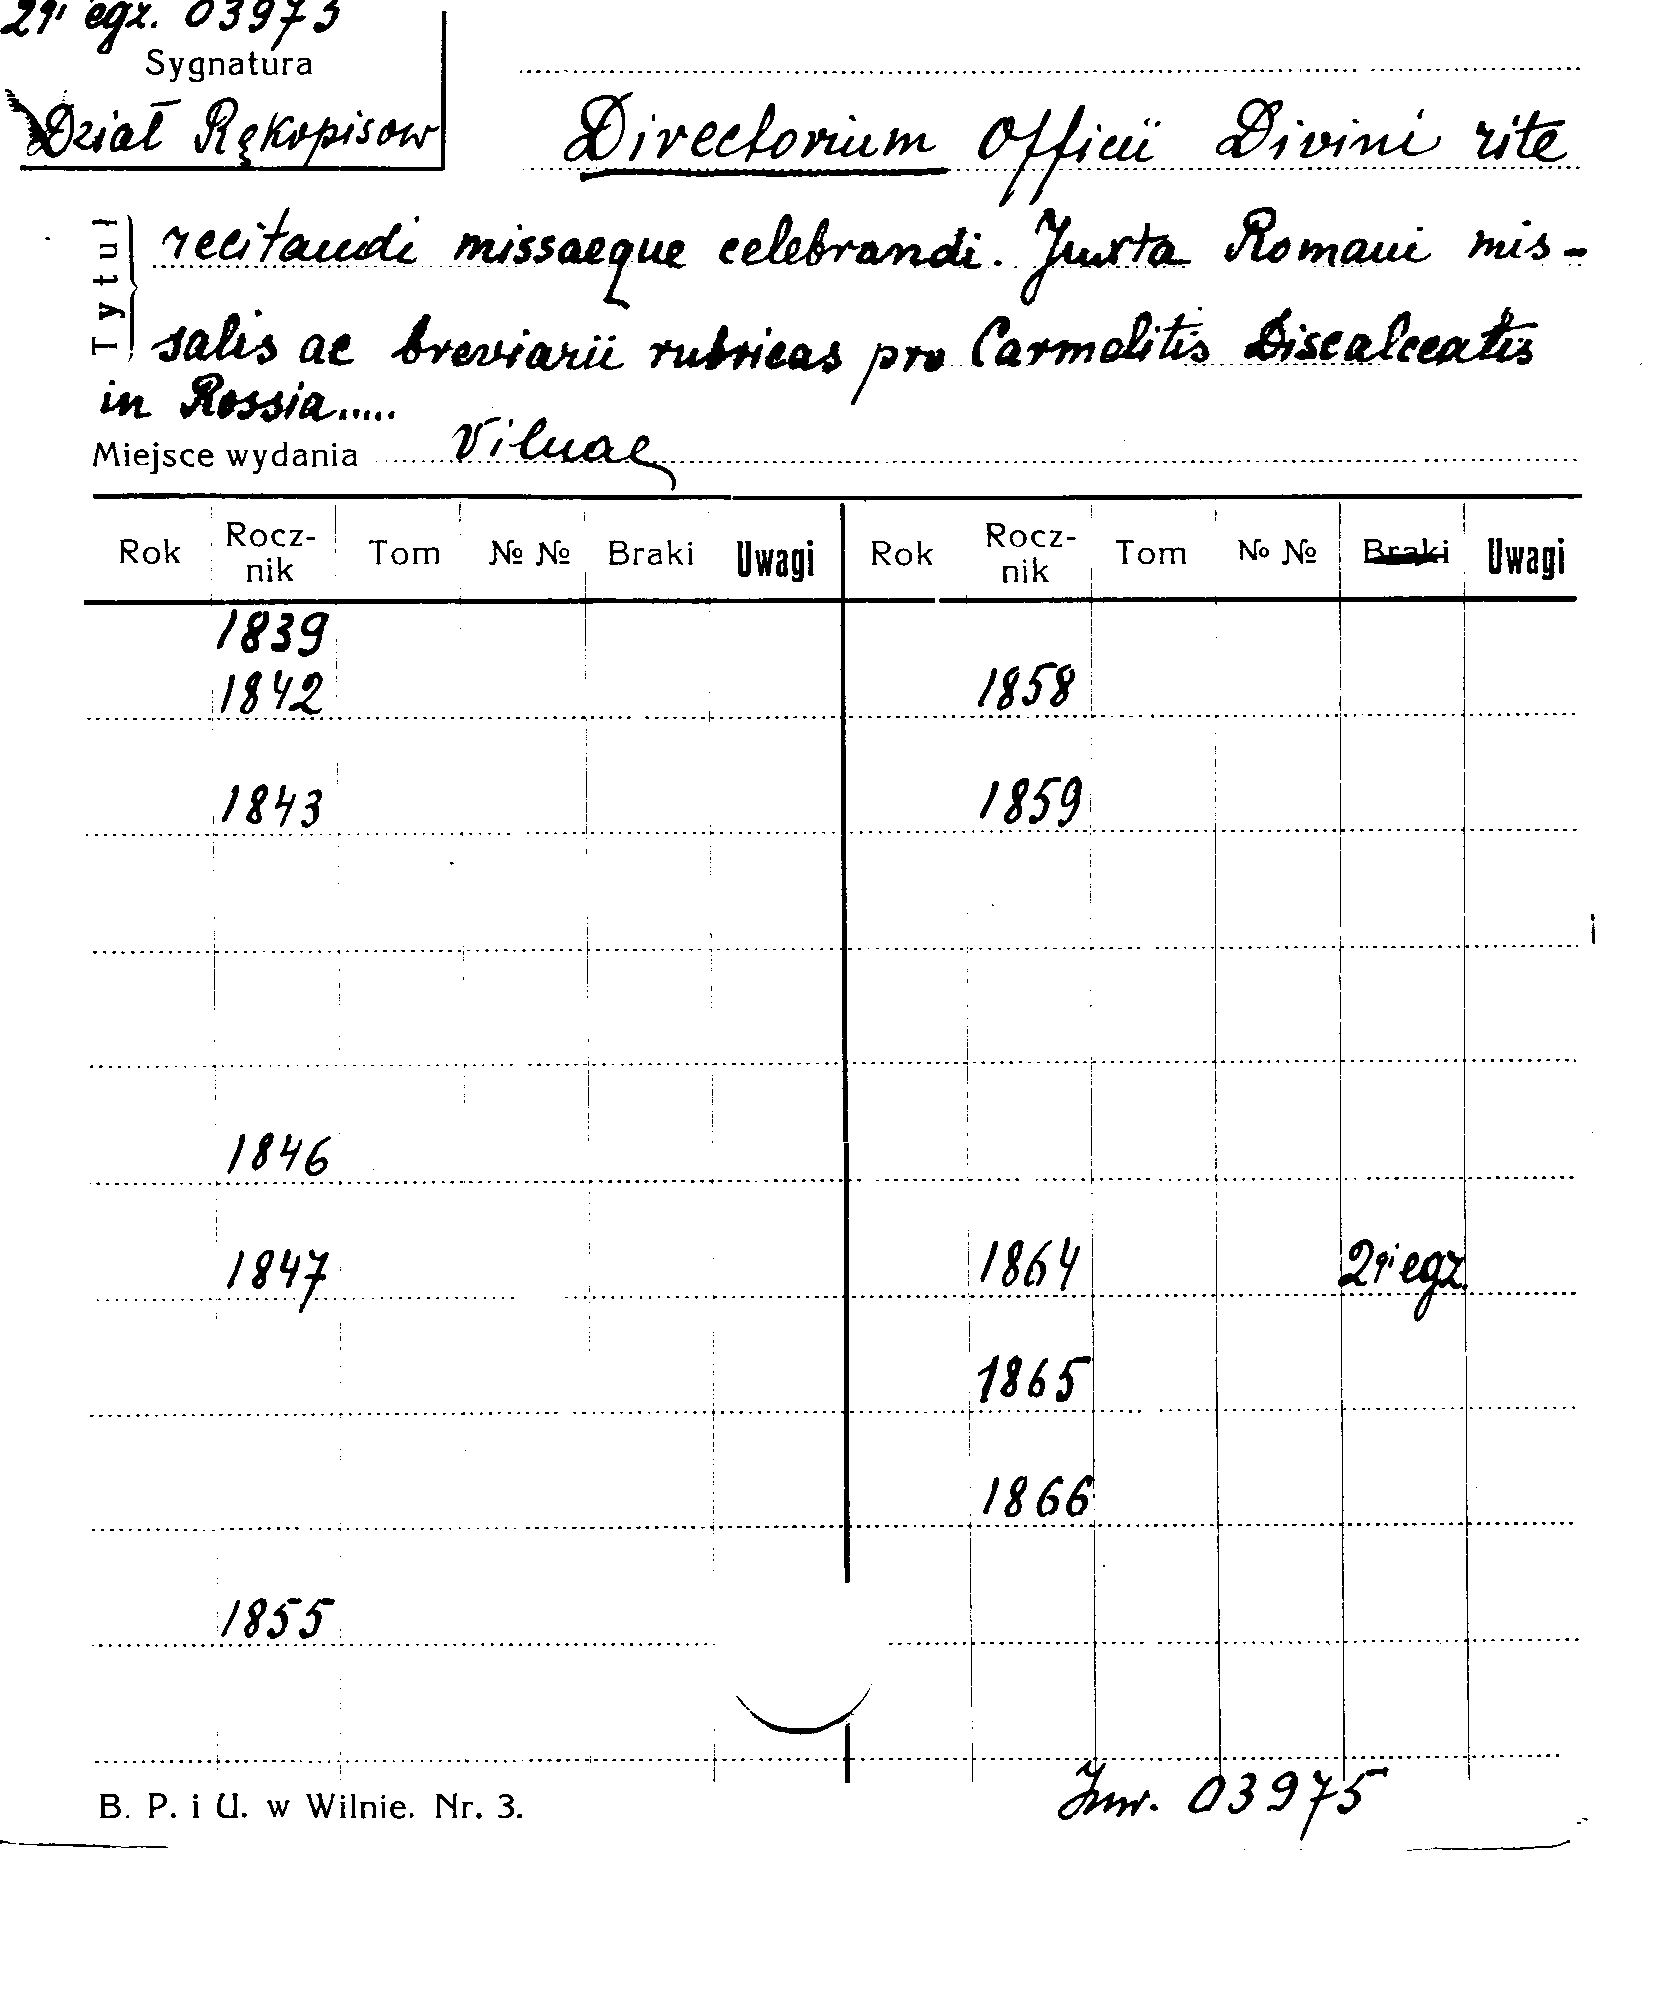 2gi egz. 03975
Sygnatura
Dział Rękopisow
Directorium Officii Divini rite
recitandi missaeque celebrandi. Juxta Romani mis-
salis ac breviarii rubricas pro Carmelitis Discalceatis
in Rossia.....
Tytuł
Miejsce wydania Vilnae
Rok Rocz-nik Tom № № Braki Uwagi Rok Rocz-nik Tom № № Braki Uwagi
1839
1842 1858
1843 1859
1846
1847 1864 2gi egz.
1865
1866
1855
B. P. i U. w Wilnie. Nr. 3.
Inw. 03975